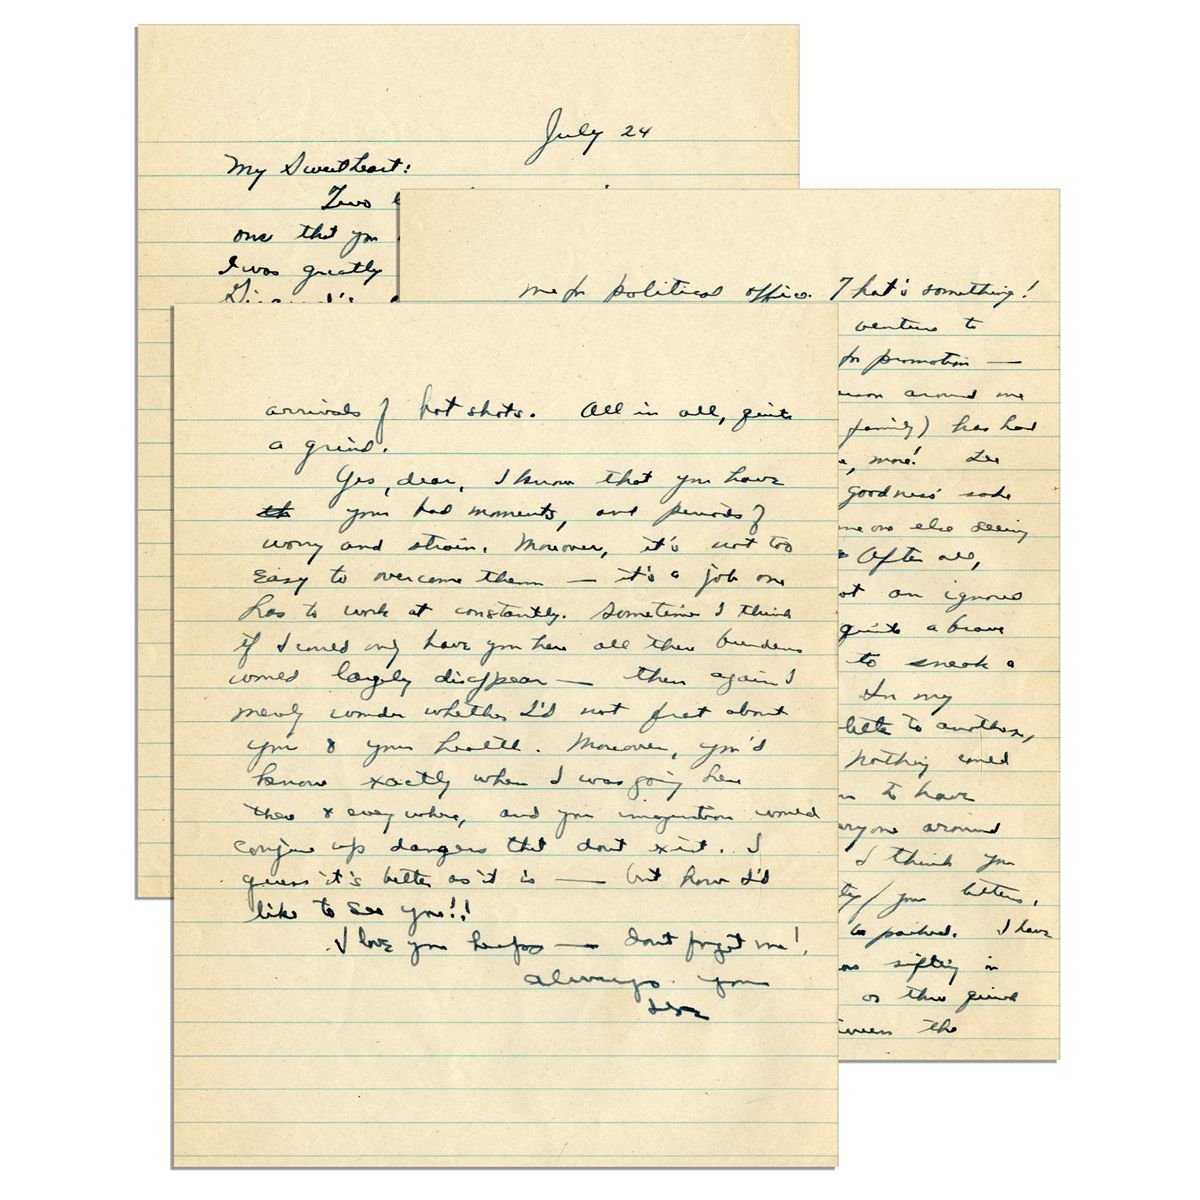 July 24
My Sweetheart:
Two
one that you
I was greatly
Giraud's
me for political office. That's something!
venture to
for promotion —
around me
family) has had
more!
goodness' sake
else seeing
After all,
an ignored
quite a brave
to sneak a
In my
letter to another,
Nothing could
to have
around
I think you
your letters,
be packed. I have
sifting in
as the quick
the
arrivals of hot shots. All in all, quite
a grind.
Yes, dear, I know that you have
th your bad moments, and periods of
worry and strain. Moreover, it's not too
easy to overcome them — it's a job one
has to work at constantly. Sometimes I think
if I could only have you here all these burdens
would largely disappear — then again I
merely wonder whether I'd not fret about
you & your health. Moreover, you'd
know exactly when I was going here
there & everywhere, and your imagination would
conjure up dangers that don't exist. I
guess it's better as it is — but how I'd
like to see you!!
I love you heaps — don't forget me!
Always yours
Ike